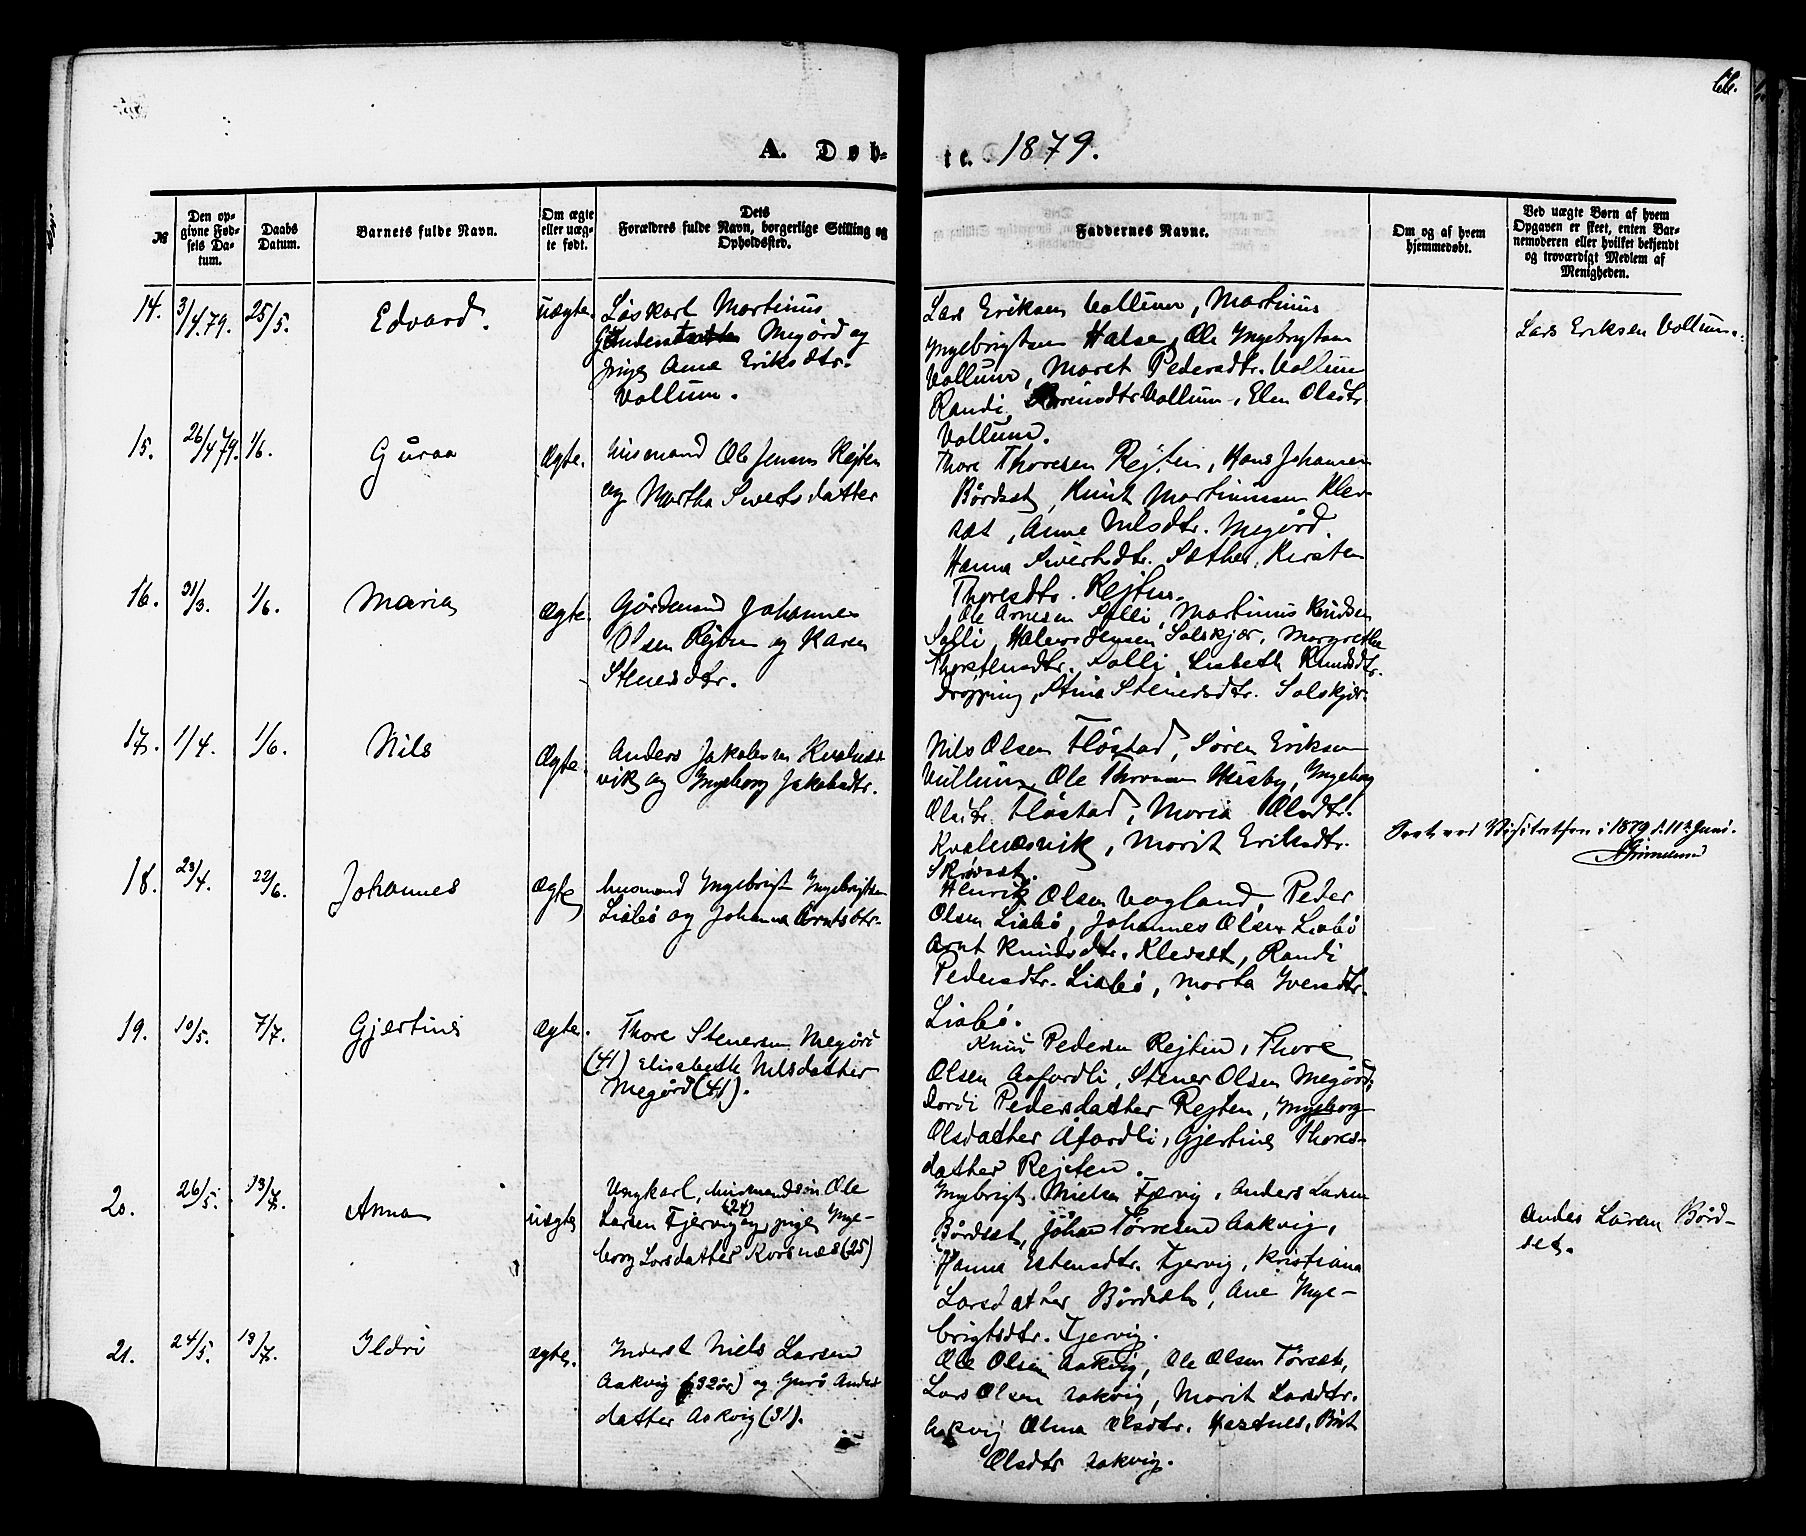 66.
A. Døb-
te. 1879.
№
Den op-
givne Fød-
sels Da-
tum.
Daabs
Datum.
Barnets fulde Navn.
Om ægte
eller uæg-
te født.
Dets
Forældres fulde Navn, borgerlige Stilling og
Opholdssted.
Faddernes Navne.
Om og af hvem
hjemmedøbt.
Ved uægte Børn af hvem
Opgaven er skeet, enten Bar-
nemoderen eller hvilket bekjendt
og troværdigt Medlem af
Menigheden.
14. 3/4.79. 25/5. Edvard. uægte.
Løskarl Martinus
Megård og
pige Ane Eriksdtr.
Vollum.
Lars Eriksen Vollum, Martinus
Ingebrigtsen Halse, Ole Ingebrigtsen
Vollum, Maret Pedersdtr. Vollum
Randi Vollum, Elen Olsdtr.
Vollum.
Lars Eriksen Vollum.
15. 26/4 79. 1/6. Guraa Ægte.
husmand Ole Jensen Rejten
og Martha Sivertsdatter
Thore Thoresen Rejten, Hans Johansen
Bårdset, Knut Martinussen Klev-
set, Anne Nilsdtr. Megård.
Hanna Sivertsdtr. Sæther, Kirsten
Thoresdtr. Rejten.
16. 31/3. 1/6. Maria Ægte.
Gårdmand Johannes
Olsen Rejten og Karen
Stenersdtr.
Ole Arnesen Solli, Martinus Knudsen
Solli, Halvor Jensen Solskjær, Margrethe
Thorstensdtr. Solli Lisbeth Knudsdtr.
Dropping, Stina Stenersdtr. Solskjær.
17. 1/4. 1/6. Nils Ægte.
Anders Jakobsen Kvalnes-
vik og Ingeborg Jakobsdtr.
Nils Olsen Fløstad, Søren Eriksen
Vullum, Ole Thoresen Husby, Ingeborg
Olsdtr. Fløstad, Maria Olsdtr.
Kvalnesvik, Marit Eriksdtr.
Skrøvset.
Seet ved Visitatsen i 1879 d. 11te Juni.
Grimelund
18. 23/4. 22/6. Johannes Ægte
husmand Ingebrigt Ingebrigtsen
Liabø og Johanna Arntsdtr.
Henrik Olsen Vagland, Peder
Olsen Liabø, Johannes Olsen Liabø
Arnt Knudsdtr. Klevset, Randi
Pedersdtr. Liabø, Marta Iversdtr.
Liabø.
19. 10/5. 7/7. Gjertine Ægte.
Thore Stenersen Megård
(41) Elisabeth Nilsdatter
Megård (41).
Knut Pedersen Rejten, Thore
Olsen Aafardli, Stener Olsen Megård,
Dordi Pedersdatter Rejten, Ingeborg
Olsdatter Åfardli, Gjertine Thores-
datter Rejten.
20. 26/5. 13/7. Anna uægte
Ungkarl, husmandssøn Ole
Larsen Fjervig (24) og pige Inge-
borg Larsdatter Korsnæs (25)
Ingebrigt Nielsen Fjervig, Anders Larsen
Bårdset, Johan Tøresen Aakvig,
Hanna Estensdtr. Fjervig, Kristiana
Larsdatter Bårdset, Ane Inge-
brigtsdtr. Fjervig.
Anders Larsen Bård-
set.
21. 24/5. 13/7. Ildri ægte.
Inderst Niels Larsen
Aakvig (32 år) og Gurø Anders
datter Aakvig (31).
Ole Olsen Aakvig, Ole Olsen Tørset,
Lars Olsen Aakvig, Marit Larsdtr.
Aakvig Olina Olsdtr. Hestnes, Brit
Olsdtr Aakvig.